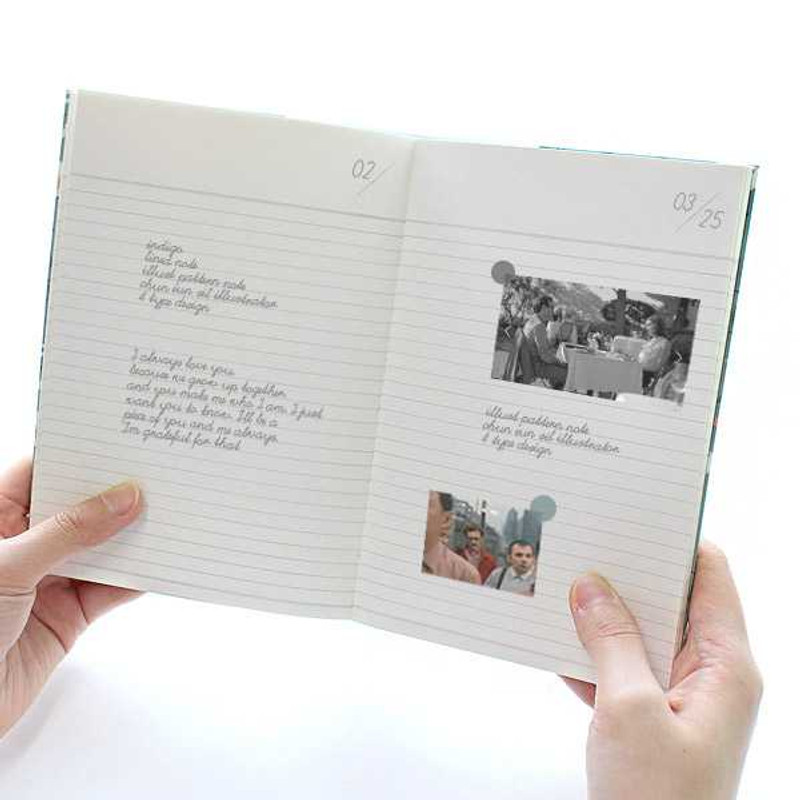 02/
indigo
lined note
illust pattern note
chun eun sil illustrator
& type design
I always love you
because we grow up together
and you make me who I am. I just
want you to know, I'll be a
piece of you and me always.
I'm grateful for that
03/25
illust pattern note
chun eun sil illustrator
& type design